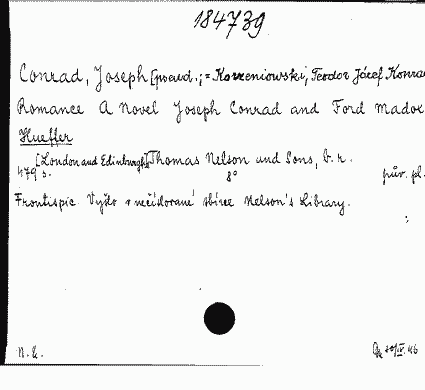 184739
Conrad, Joseph [pseud.; = Korzeniowski, Teodor Józef Konra
Romance A Novel Joseph Conrad and Ford Madox
Hueffer
[London and Edinburgh] Thomas Nelson and Sons, b. r.
479 s. 8° pův. pl.
Frontispic. Vyšlo v nečíslované sbírce Nelson's Library.
N. L. 46